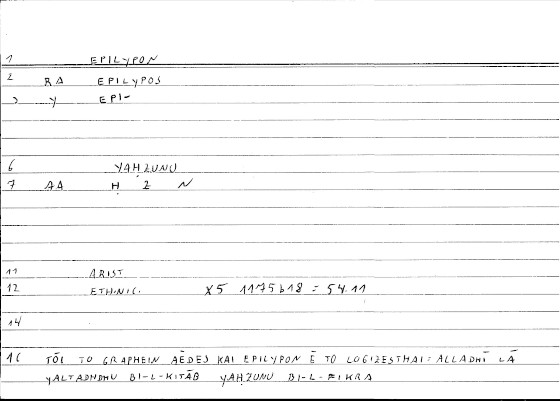 1 EPILYPON
2 RA EPILYPOS
3 Y EPI-
6 YAḤZUNU
7 AA Ḥ Z N
11 ARIST
12 ETH.NIC. X5 1175b18 = 54.11
14
16 TŌI TO GRAPHEIN AĒDES KAI EPILYPON Ē TO LOGIZESTHAI: ALLADHĪ LĀ
YALTADHDHU BI-L-KITĀB YAḤZUNU BI-L-FIKRA